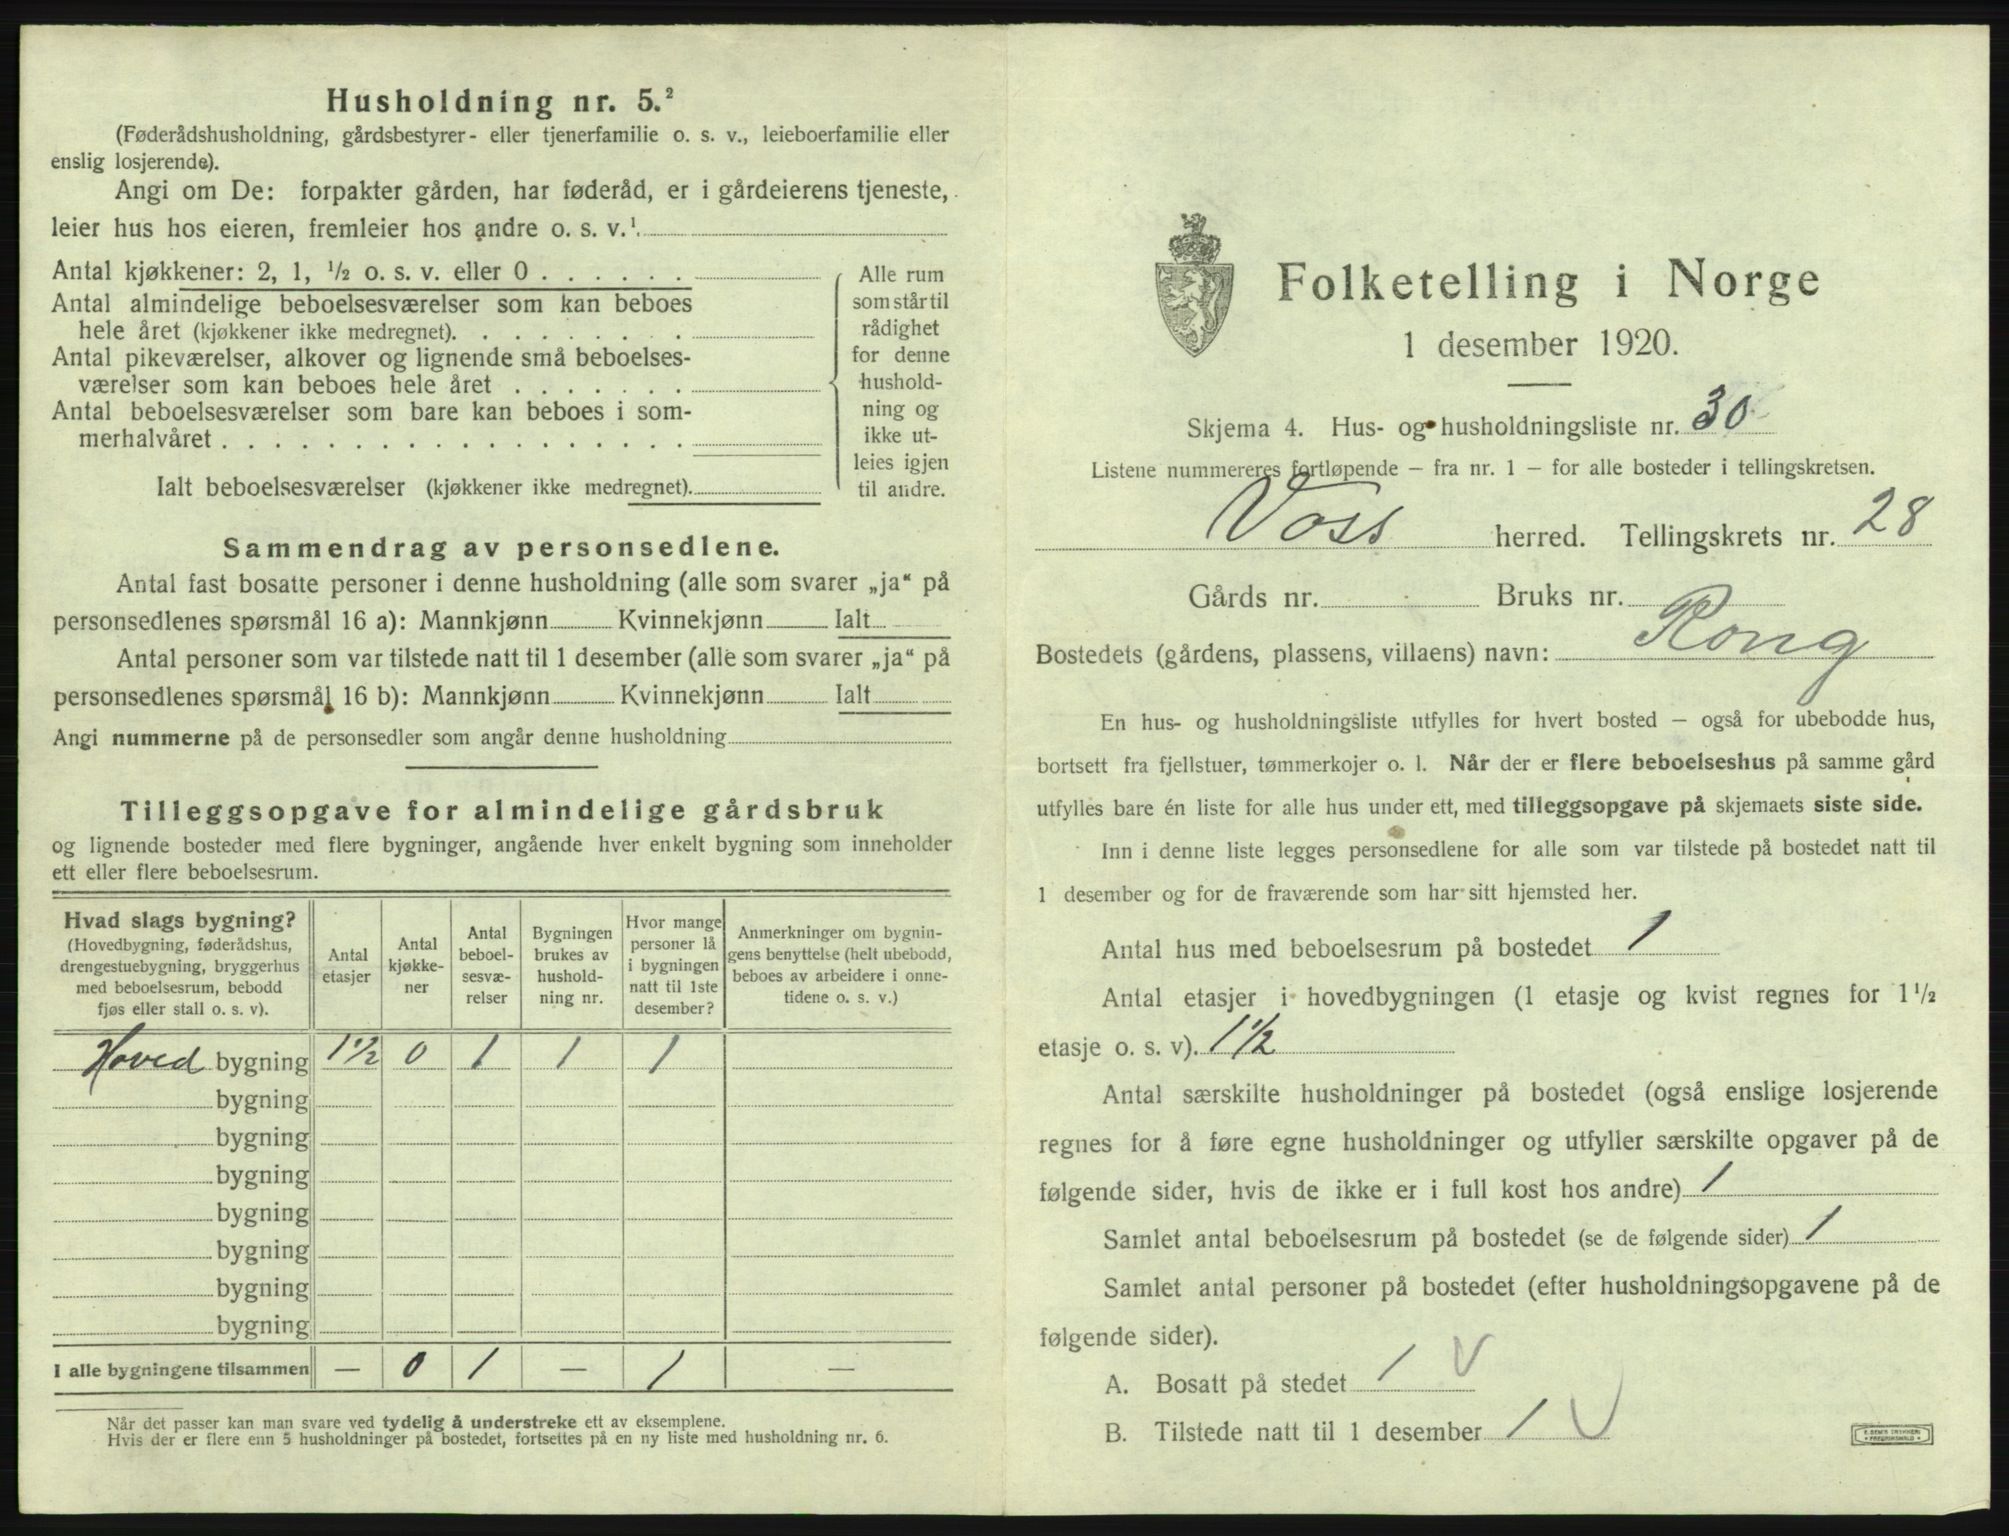 Husholdning nr. 5.²
(Føderådshusholdning, gårdsbestyrer- eller tjenerfamilie o. s. v., leieboerfamilie eller
enslig losjerende).
Angi om De: forpakter gården, har føderåd, er i gårdeierens tjeneste,
leier hus hos eieren, fremleier hos andre o. s. v.¹
Antal kjøkkener: 2, 1, ½ o. s. v. eller 0 . . . . . .
Antal almindelige beboelsesværelser som kan beboes
hele året (kjøkkener ikke medregnet). . . . . . . . .
Antal pikeværelser, alkover og lignende små beboelses-
værelser som kan beboes hele året . . . . . . .
Antal beboelsesværelser som bare kan beboes i som-
merhalvåret . . . . . . . . . . . . . . . . . .
Ialt beboelsesværelser (kjøkkener ikke medregnet).
Alle rum
som står til
rådighet
for denne
hushold-
ning og
ikke ut-
leies igjen
til andre.
Sammendrag av personsedlene.
Antal fast bosatte personer i denne husholdning (alle som svarer „ja“ på
personsedlenes spørsmål 16 a): Mannkjønn Kvinnekjønn Ialt
Antal personer som var tilstede natt til 1 desember (alle som svarer „ja“ på
personsedlenes spørsmål 16 b): Mannkjønn Kvinnekjønn Ialt
Angi nummerne på de personsedler som angår denne husholdning
Tilleggsopgave for almindelige gårdsbruk
og lignende bosteder med flere bygninger, angående hver enkelt bygning som inneholder
ett eller flere beboelsesrum.
Hvad slags bygning?
(Hovedbygning, føderådshus,
drengestuebygning, bryggerhus
med beboelsesrum, bebodd
fjøs eller stall o. s. v).
Antal
etasjer
Antal
kjøkke-
ner
Antal
beboel-
sesvæ-
relser
Bygningen
brukes av
hushold-
ning nr.
Hvor mange
personer lå
i bygningen
natt til 1ste
desember?
Anmerkninger om bygnin-
gens benyttelse (helt ubebodd,
beboes av arbeidere i onne-
tidene o. s. v.)
Hoved bygning 1½ 0 1 1 1
bygning
bygning
bygning
bygning
bygning
bygning
bygning
I alle bygningene tilsammen — 0 1 — 1 —
Når det passer kan man svare ved tydelig å understreke ett av eksemplene.
Hvis der er flere enn 5 husholdninger på bostedet, fortsettes på en ny liste med husholdning nr. 6.
Folketelling i Norge
1 desember 1920.
Skjema 4. Hus- og husholdningsliste nr. 30
Listene nummereres fortløpende — fra nr. 1 — for alle bosteder i tellingskretsen.
Voss herred. Tellingskrets nr. 28
Gårds nr. Bruks nr.
Bostedets (gårdens, plassens, villaens) navn: Rong
En hus- og husholdningsliste utfylles for hvert bosted — også for ubebodde hus,
bortsett fra fjellstuer, tømmerkojer o. l. Når der er flere beboelseshus på samme gård
utfylles bare én liste for alle hus under ett, med tilleggsopgave på skjemaets siste side.
Inn i denne liste legges personsedlene for alle som var tilstede på bostedet natt til
1 desember og for de fraværende som har sitt hjemsted her.
Antal hus med beboelsesrum på bostedet 1
Antal etasjer i hovedbygningen (1 etasje og kvist regnes for 1½
etasje o. s. v). 1½
Antal særskilte husholdninger på bostedet (også enslige losjerende
regnes for å føre egne husholdninger og utfyller særskilte opgaver på de
følgende sider, hvis de ikke er i full kost hos andre) 1
Samlet antal beboelsesrum på bostedet (se de følgende sider) 1
Samlet antal personer på bostedet (efter husholdningsopgavene på de
følgende sider).
A. Bosatt på stedet 1 V
B. Tilstede natt til 1 desember 1 V